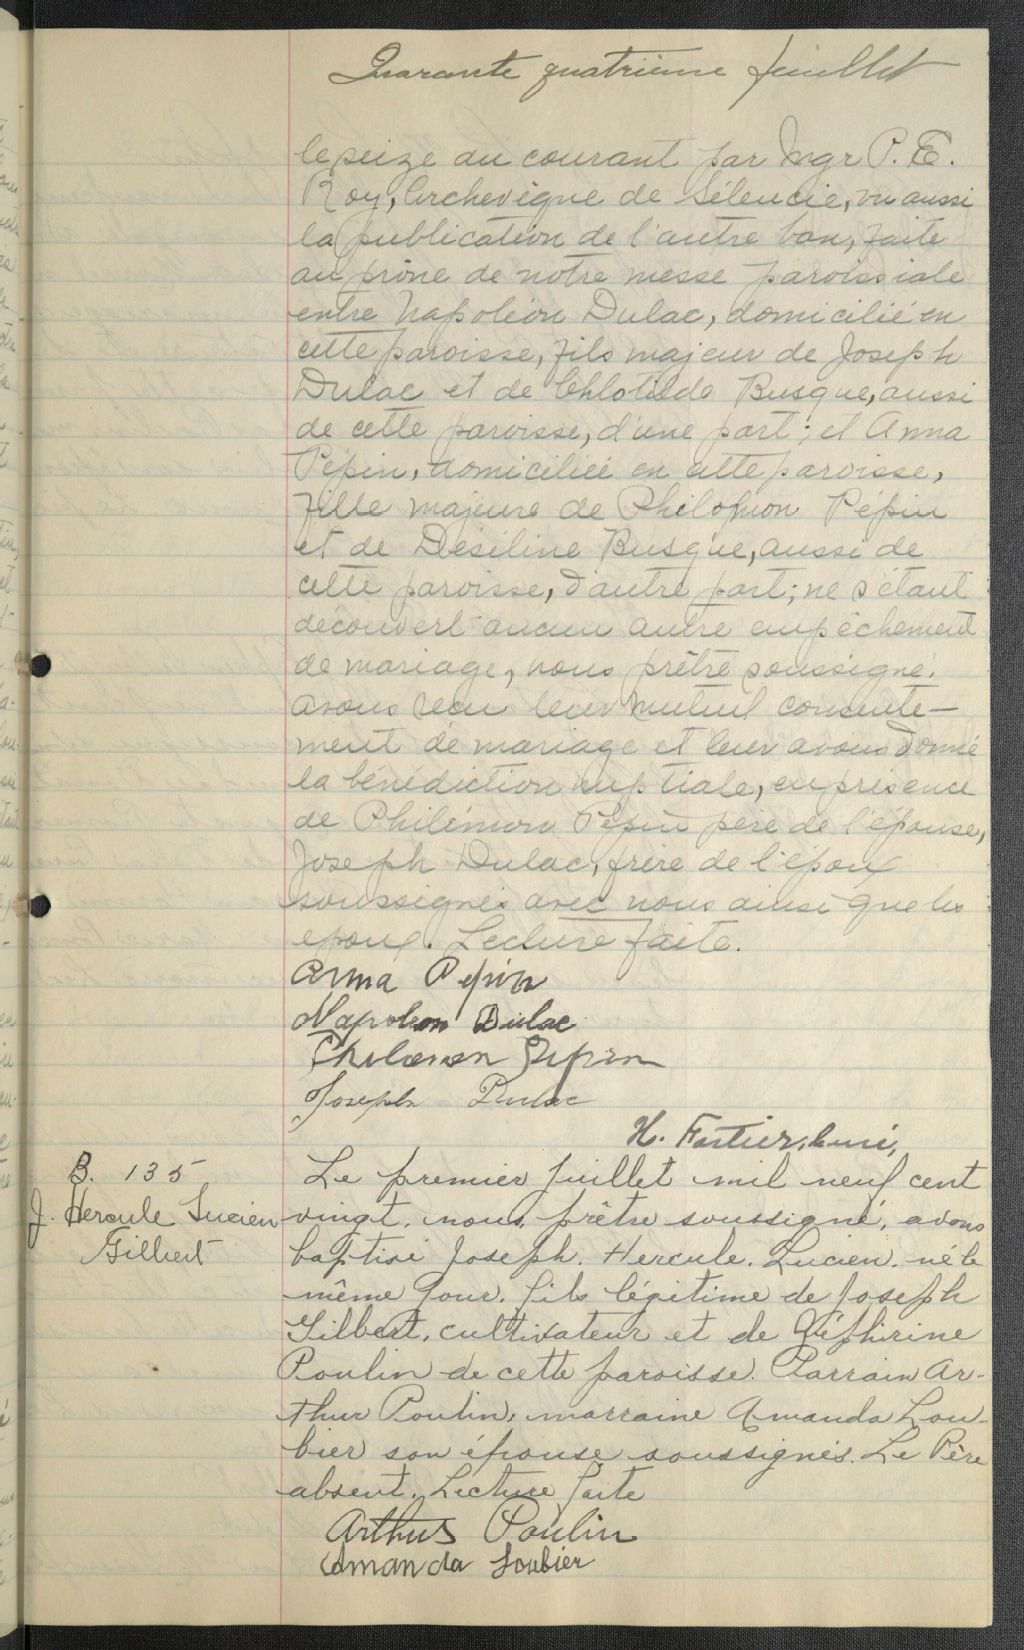 Quarante quatrième feuillet
le seize du courant par Mgr P. E.
Roy, Archevêque de Séleucie, vu aussi
la publication de l'autre ban, faite
au prône de notre messe paroissiale
entre Napoléon Dulac, domicilié en
cette paroisse, fils majeur de Joseph
Dulac et de Chlotilde Busque, aussi
de cette paroisse, d'une part; et Anna
Pépin, domiciliée en cette paroisse,
fille majeure de Philémon Pépin
et de Déseline Busque, aussi de
cette paroisse, d'autre part; ne s'étant
découvert aucun autre empêchement
de mariage, nous prêtre soussigné.
avons reçu leur mutuel consente-
ment de mariage et leur avons donné
la bénédiction nuptiale, en présence
de Philémon Pépin père de l'épouse,
Joseph Dulac, frère de l'époux
soussignés avec nous ainsi que les
époux. Lecture faite.
Anna Pepin
Napoleon Dulac
Philemon Pepin
Joseph Dulac
H. Fortier, curé,
B. 135
J. Hercule Lucien
Gilbert
Le premier Juillet mil neuf cent
vingt, nous, prêtre soussigné, avons
baptisé Joseph. Hercule. Lucien. né le
même jour. fils légitime de Joseph
Gilbert, cultivateur et de Zéphirine
Poulin de cette paroisse. Parrain Ar-
thur Poulin, marraine Amanda Lou-
bier son épouse soussignés. Le Père
absent. Lecture faite
Arthur Poulin
Amanda Loubier